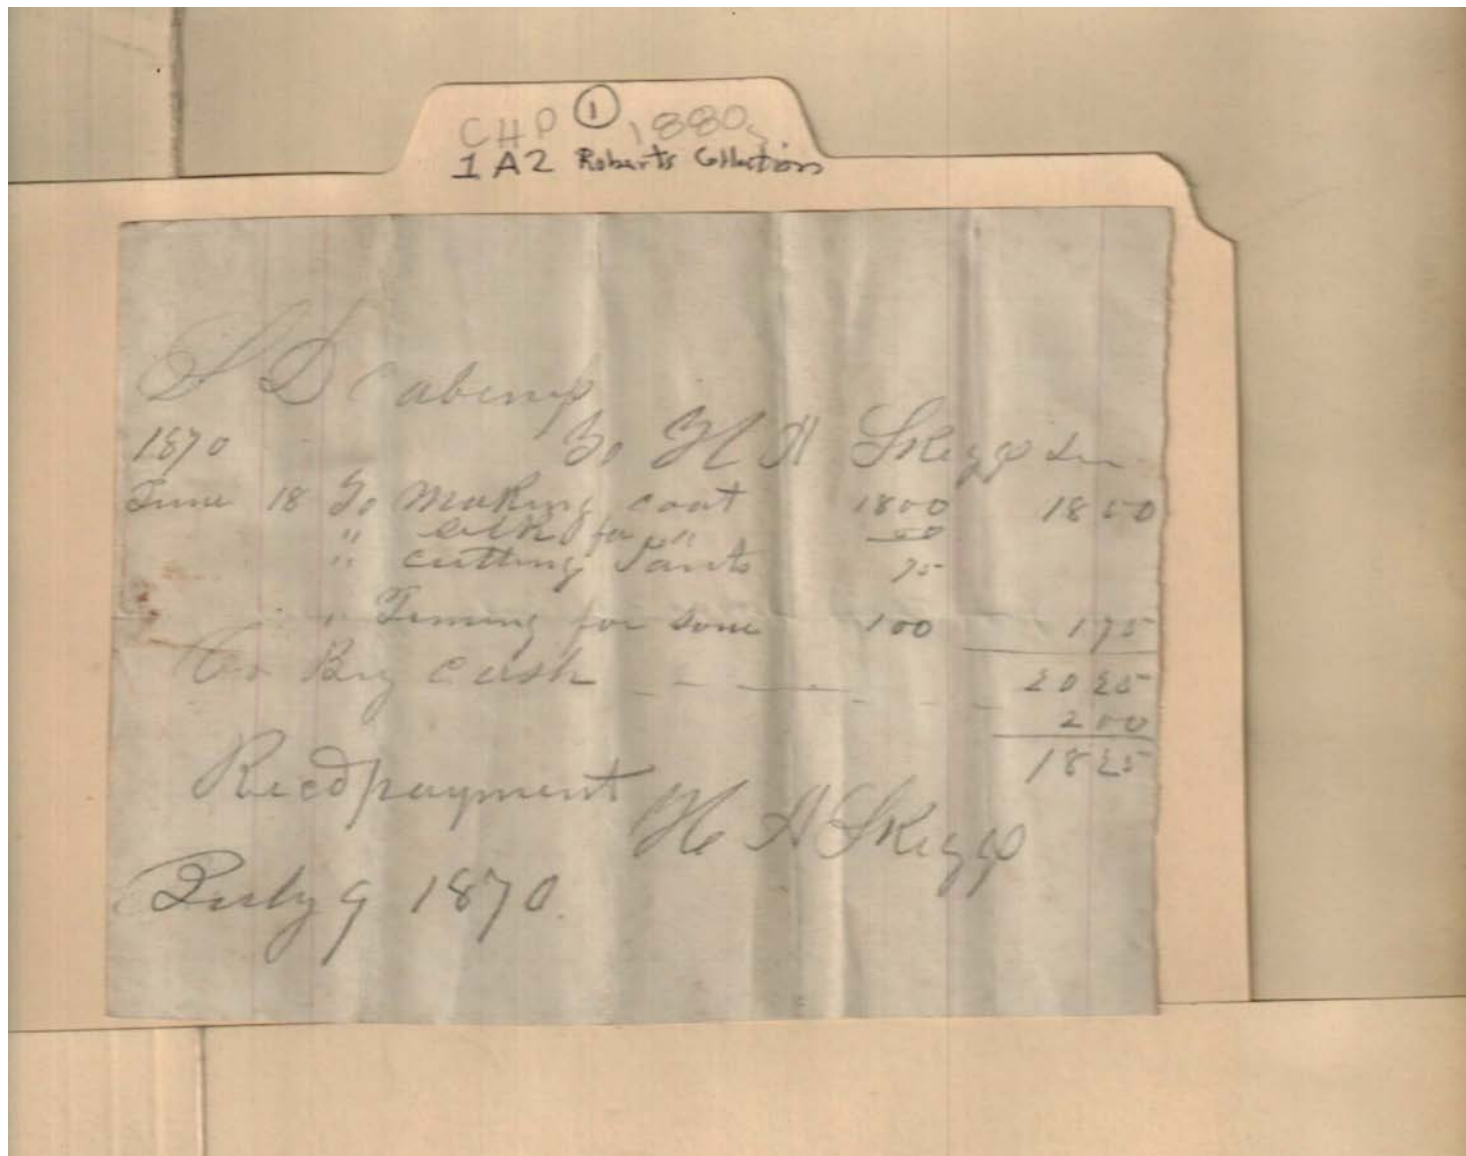 CHP ① 1880s
1A2 Roberts Collection
S D
1870 To H A Skegg
June 18 To Making coat 1800 1850
" silk for " 50
" cutting Pants 75
" Triming for same 100 175
Cr By Cash 2025
200
1825
Recd payment
H A Skegg
July 9 1870.